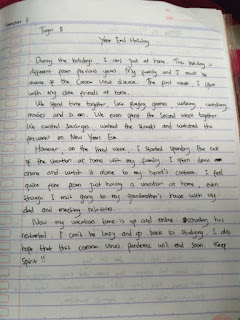 Tugas 8
Year End Holiday
During the holidays, I was just at home. This holiday is
different from previous years. My family and I must be
aware of the Corona Virus disease. The first week, I spent
with my close friends at home.
We spend time together like playing games, walking, watching
movies and so on. We even spent the second week together
We roasted sausages, walked the streets and watched the
firework on New Years Eve.
However, on the third week, I started spending the rest
of the vacation at home with my family. I often
and watch it alone to my heart's content. I feel
quite from just having a vacation at home, even
though I miss going to my grandmother's house with my
dad and meeting relatives.
Now my vacation time is up and online schooling has
restarted. I can't be lazy and go back to studying. I also
hope that this corona virus pandemic will end soon. Keep
Spirit !!!